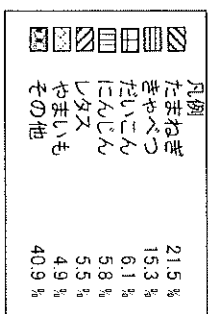 凡例
たまねぎ 21.5 %
きゃべつ 15.3 %
だいこん 6.1 %
にんじん 5.8 %
レタス 5.5 %
やまいも 4.9 %
その他 40.9 %